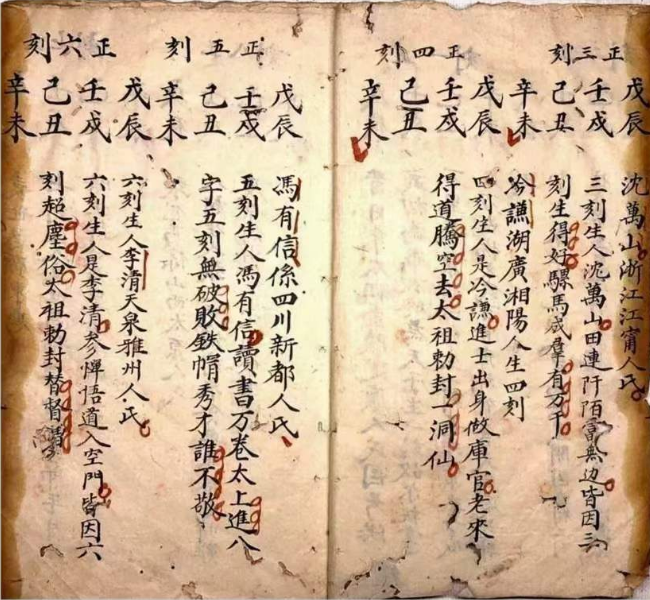 正三刻
戊辰
壬戌
己丑
辛未
沈萬山浙江江甯人氏
三刻生人沈萬山田連阡陌富無边皆因三
刻生得好騾馬成羣有万千
正四刻
戊辰
壬戌
己丑
辛未
冷謙湖廣湘陽人生四刻
四刻生人是冷謙進士出身做庫官老來
得道騰空去太祖勅封一洞仙
正五刻
戊辰
壬戌
己丑
辛未
馮有信係四川新都人氏
五刻生人馮有信讀書万卷太上進八
字五刻無破敗鉄帽秀才誰不敬
正六刻
戊辰
壬戌
己丑
辛未
六刻生人李清天泉雅州人氏
六刻生人是李清參憚悟道入空門皆因六
刻超塵俗太祖勅封